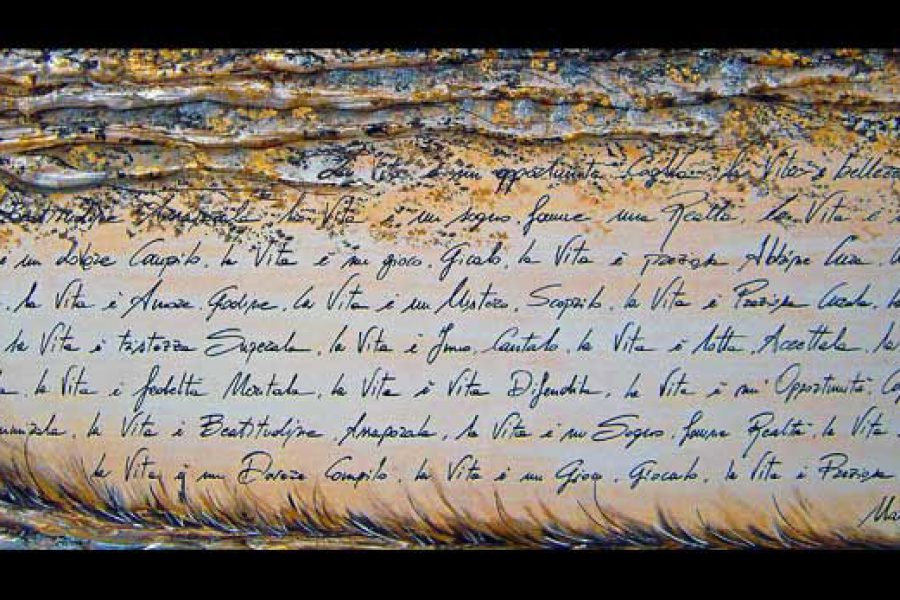 La Vita è un opportunità Coglila. la Vita è bellezza
Beatitudine Assaporala la Vita è un sogno fanne una Realtà. la Vita è
è un dovere Compilo. la Vita è un gioco. Giocalo, la Vita è preziosa Abbine Cura.
. la Vita è Amore Godine, la Vita è un Mistero, Scoprilo. la Vita è Preziosa Curala.
la Vita è tristezza Superala. la Vita è Inno. Cantalo. la Vita è lotta, Accettala. la
la Vita è fedeltà Meritala. la Vita è Vita Difendila, la Vita è un' Opportunità
la Vita è Beatitudine, Assaporala, la Vita è un Sogno, fanne Realtà. la Vita
la Vita è un Dovere Compilo. la Vita è un Gioco, Giocalo, la Vita è Preziosa